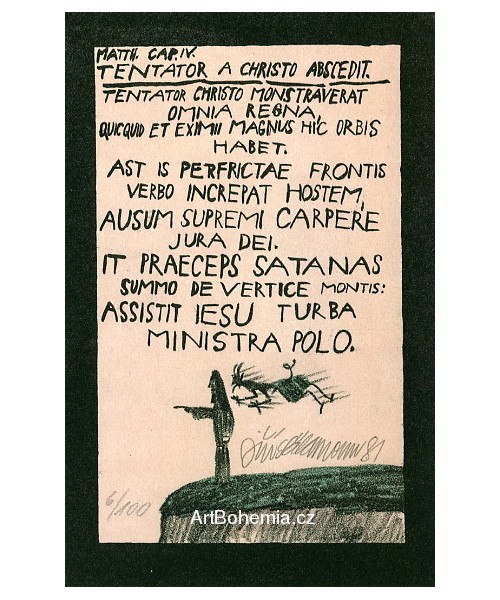 MATTH. CAP. IV.
TENTATOR A CHRISTO ABSCEDIT.
TENTATOR CHRISTO MONSTRAVERAT
OMNIA REGNA,
QUICQUID ET EXIMII MAGNUS HIC ORBIS
HABET.
AST IS PERFRICTAE FRONTIS
VERBO INCREPAT HOSTEM,
AUSUM SUPREMI CARPERE
JURA DEI.
IT PRAECEPS SATANAS
SUMMO DE VERTICE MONTIS:
ASSISTIT IESU TURBA
MINISTRA POLO.
81
6/100
ArtBohemia.cz